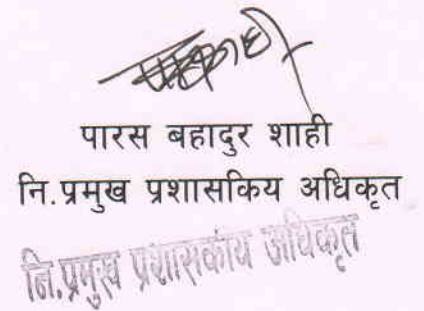 पारस बहादुर शाही
नि.प्रमुख प्रशासकिय अधिकृत
नि.प्रमुख प्रशासकीय अधिकृत